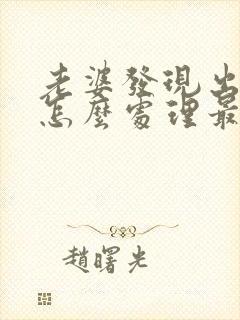 老婆發現出
怎麼處理最
趙曙光